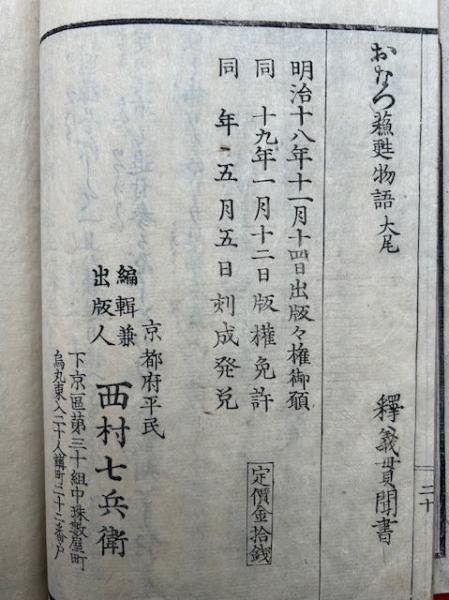 おなつ蘓甦物語 大尾
釋義貫聞書
二十
明治十八年十一月十四日出版々権御願
同 十九年一月十二日版權免許
同 年 五月五日刻成発兌
定價金拾銭
京都府平民
編輯兼
出版人
西村七兵衛
下京區第三十組中珠數屋町
烏丸東入二十人講町二十二番戸